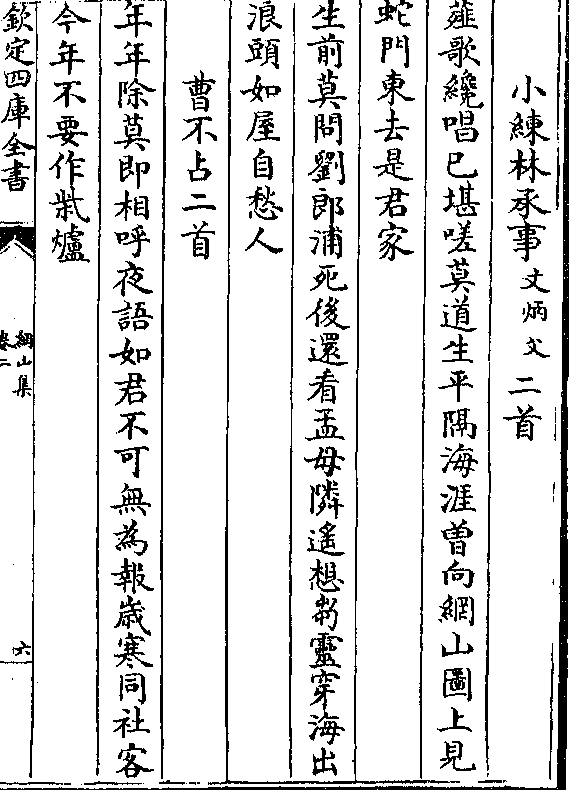 小練林承事文炳父二首
薤歌纔唱已堪嗟莫道生平隔海涯曾向網山圖上見
蛇門東去是君家
生前莫問劉郎浦死後還看孟母隣遙想芻靈穿海出
浪頭如屋自愁人
曹不占二首
年年除莫即相呼夜語如君不可無為報歳寒同社客
今年不要作煼爐
欽定四庫全書
網山集
卷二
六